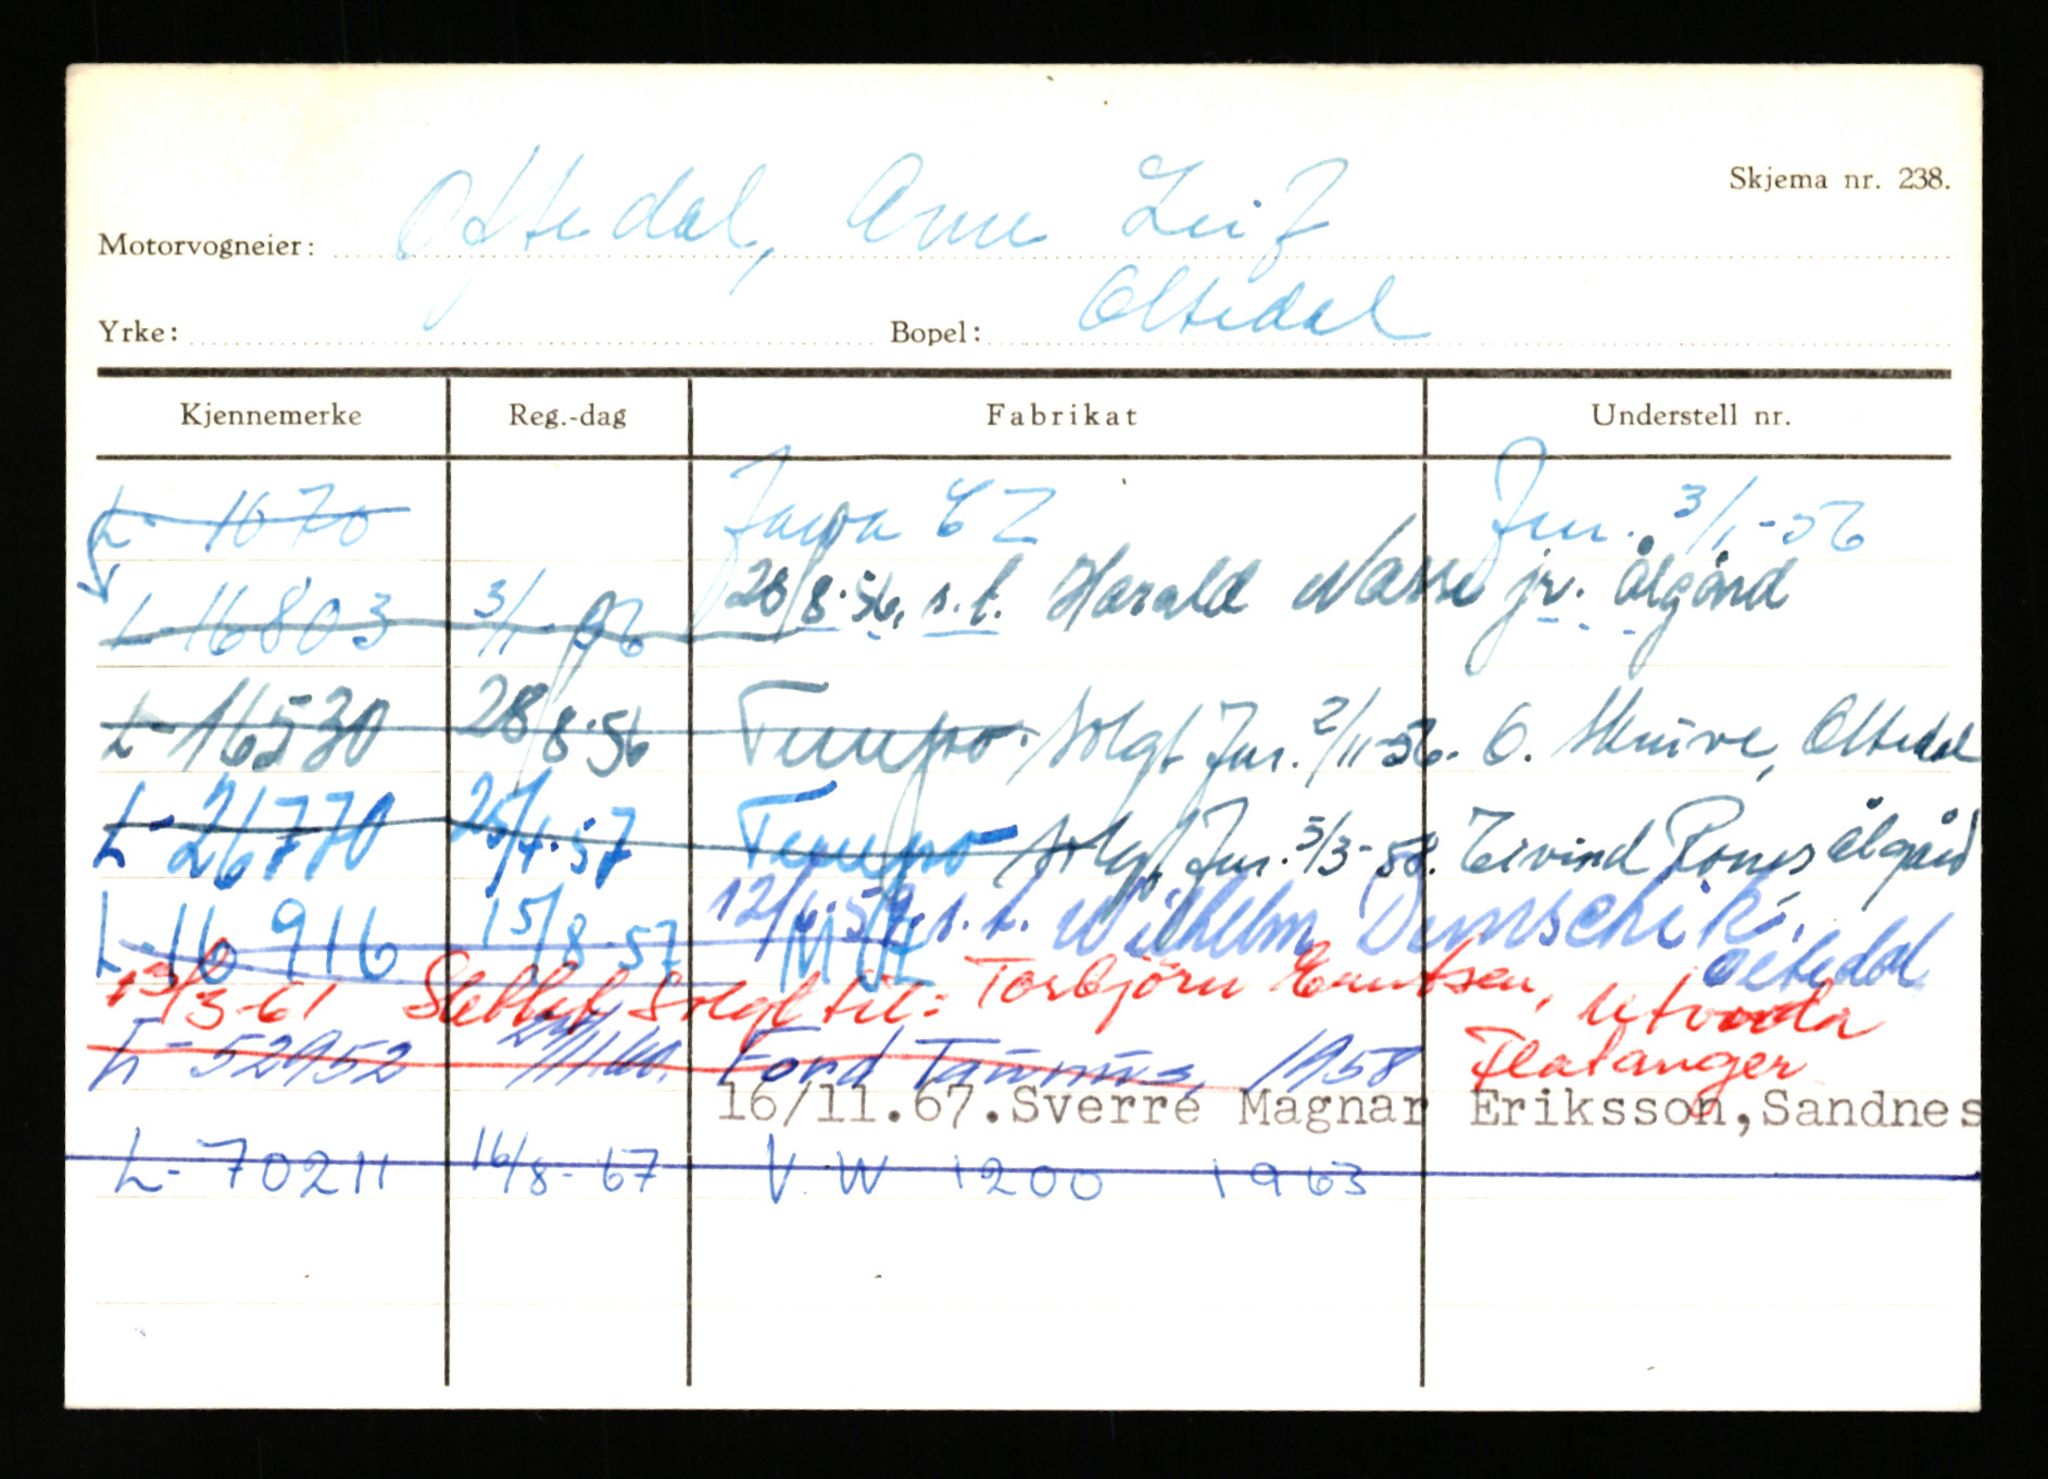 Skjema nr. 238.
Motorvogneier: Oftedal, Arne Leif
Yrke: Bopel: Oltedal
Kjennemerke Reg.-dag Fabrikat Understell nr.
L- 1670 Jawa CZ Jnr. 3/1-56
L-16803 3/1-56 28/8.56, s.t. Harald Nasse jr. Ålgård
L-16530 28/8.56 Tempo. solgt Jnr. 2/11-56. O. Skurve, Oltedal
L-26770 25/4.57 Tempo solgt Jnr. 5/3-58. Eivind Ålgård
L-16916 15/8-57 12/6.59. s.t. Wilhelm Oltedal
13/3-61 Slettet Solgt til: Torbjörn Knutsen, Utvorda
L-52952 Ford Taunus, 1958 Flatanger
16/11.67.Sverre Magnar Eriksson,Sandnes
L-70211 16/8-67 V.W 1200 1963